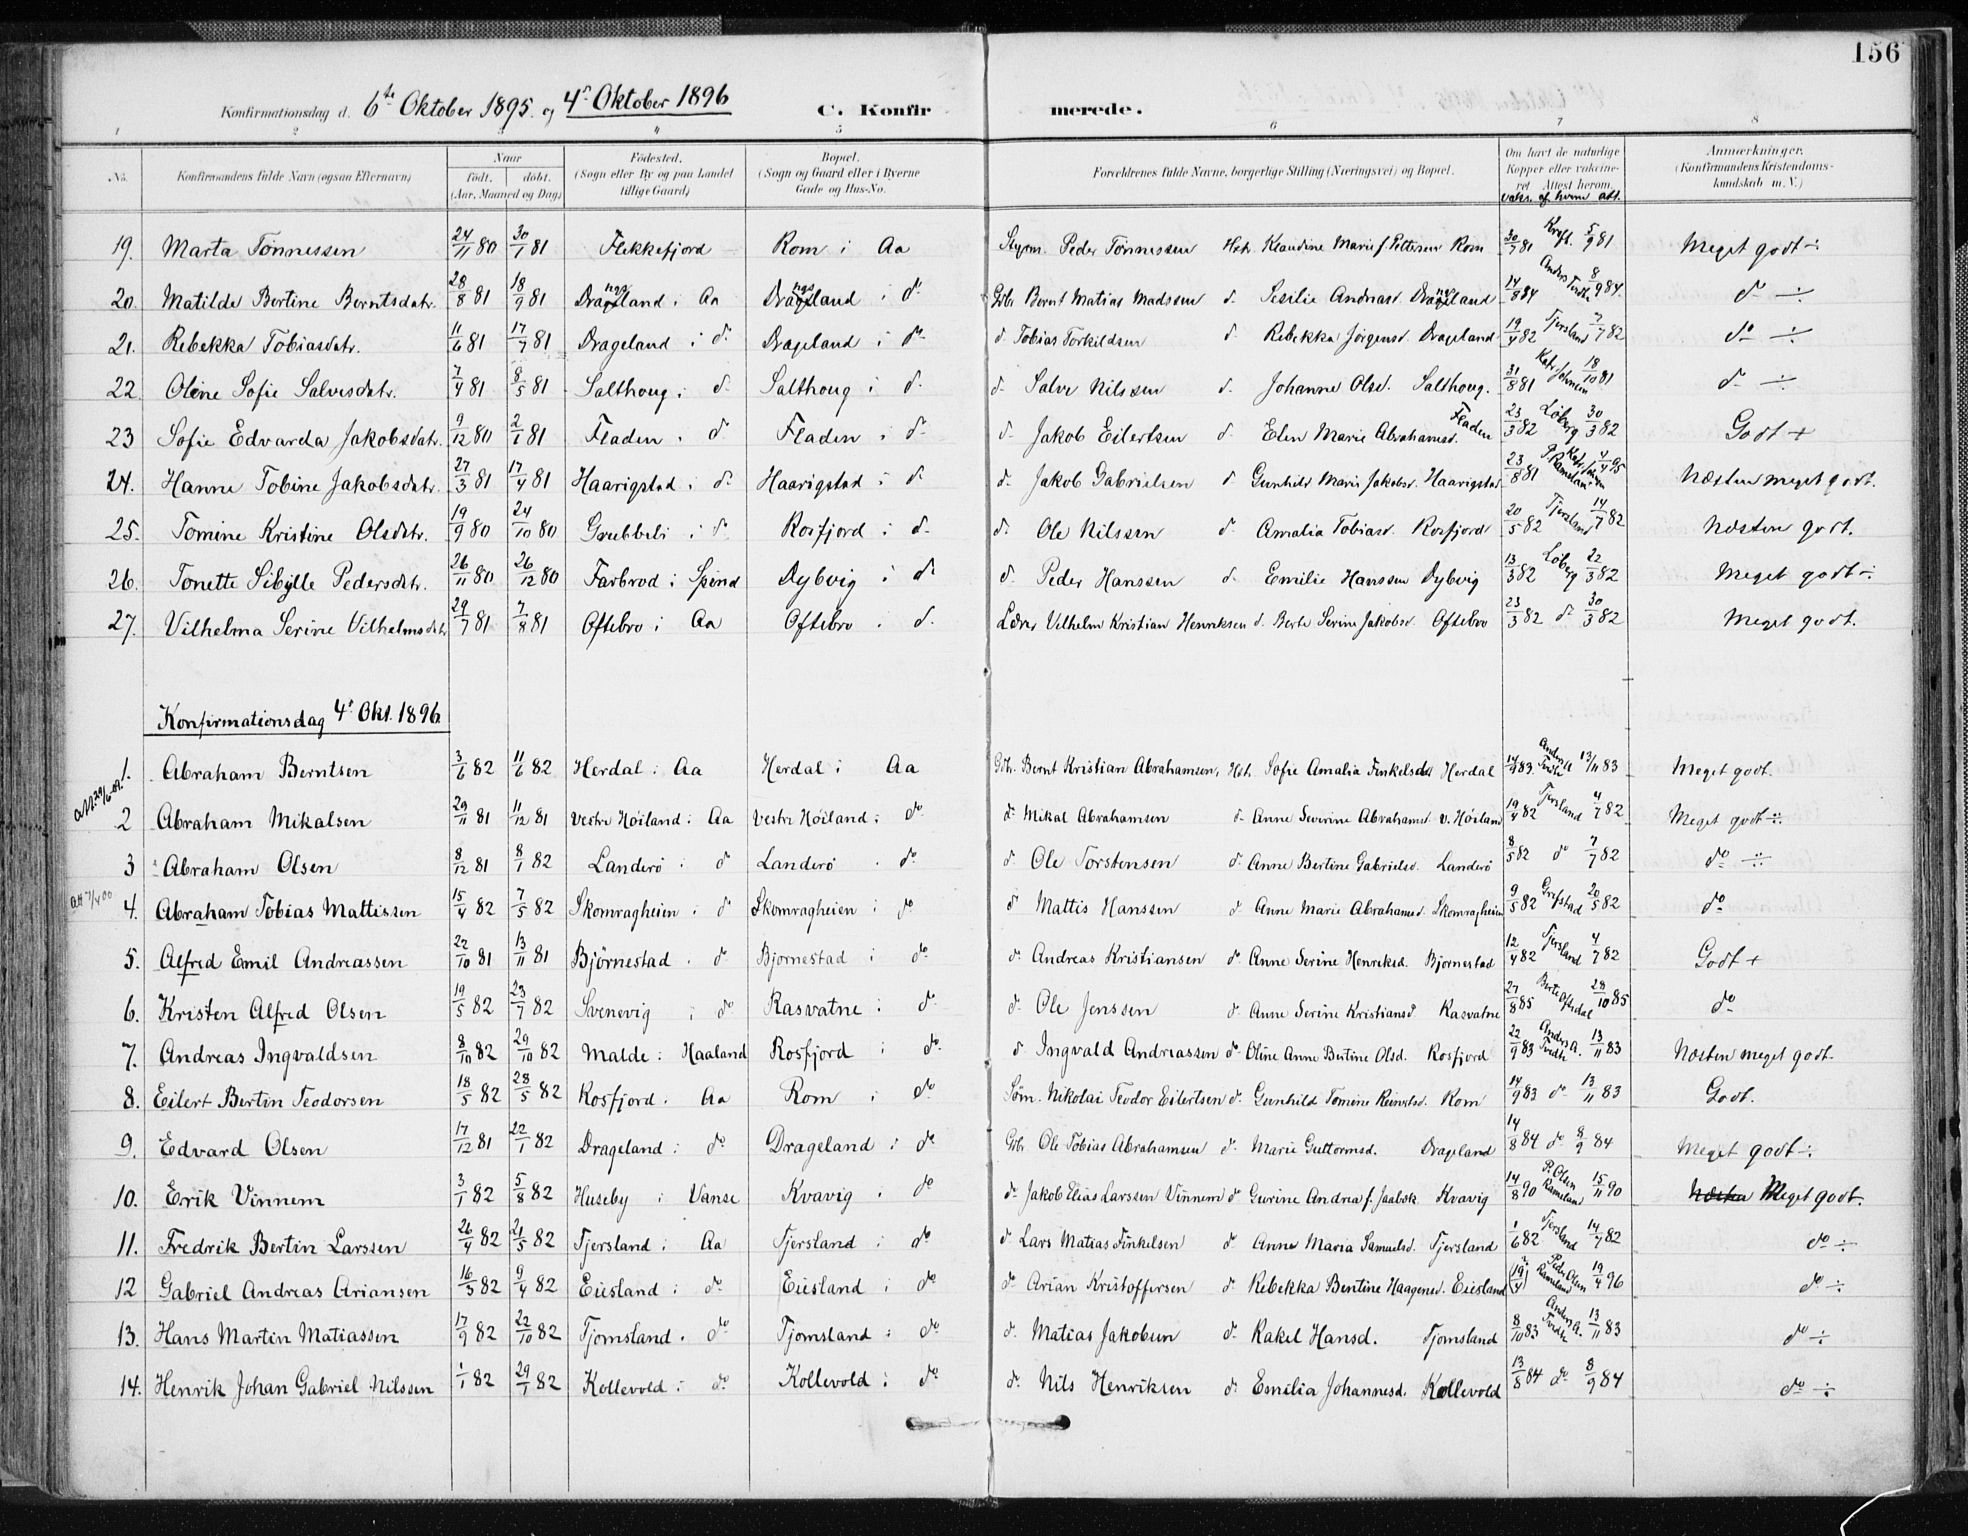 156
Konfirmationsdag d. 6te Oktober 1895 og 4de Oktober 1896 C. Konfir merede.
1 2 3 4 5 6 7 8
No. Konfirmandens fulde Navn (ogsaa Efternavn) Naar født. døbt. (Aar, Maaned og Dag) Fødested. (Sogn eller By og paa Landet tillige Gaard) Bopæl. (Sogn og Gaard eller i Byerne Gade og Hus-No. Forældrenes fulde Navne, borgerlige Stilling (Næringsvei) og Bopæl. Om havt de naturlige Kopper eller vaccineret Attest herom. vaks. af hvem att. Anmærkninger. (Konfirmandens Kristendomskundskab m. V.)
19. Marta Tønnessen 24/11 80 30/1 81 Flekkefjord Rom i Aa Styrm. Peder Tønnessen Hstr. Klaudine Marie f. Pettersen Rom 30/7 81 Kraft. 5/9 81 Meget godt ÷
20. Matilde Bertine Berntsdatr. 28/8 81 18/9 81 Drangeland i Aa Drangeland i do Gbr. Bernt Matias Madssen d. Sesilie Andreasd. Drangeland 14/8 84 Anders Tredte 8/9 84. do ÷
21. Rebekka Tobiasdtr. 11/6 81 17/7 81 Drageland i do Drageland i do d. Tobias Torkildsen d. Rebekka Jørgensd. Drageland 19/4 82 Tjersland 7/7 82 do ÷
22. Oline Sofie Salvesdtr. 7/4 81 8/5 81 Salthoug i do Salthoug i do d. Salve Nilssen d. Johanne Olsd. Salthoug. 31/8 81 18/10 81 do ÷
23 Sofie Edvarda Jakobsdatr. 9/12 80 2/1 81 Fladen i do Fladen i do d. Jakob Eilertsen d. Elen Marie Abrahamsd. Fladen 23/3 82 Løberg 30/3 82 Godt +
24. Hanne Tobine Jakobsdatr. 27/3 81 17/4 81 Haarigstad i do Haarigstad i do d. Jakob Gabrielsen d. Gunhild Marie Jakobsd. Haarigstad 23/8 81 4/4 95 Næsten meget godt.
25. Tomine Kristine Olsdtr. 19/9 80 24/10 80 Grubbeli i do Rosfjord i do d. Ole Nilssen d. Amalia Tobiasd. Rosfjord 20/5 82 Tjersland 14/7 82 Næsten godt.
26. Tonette Sibylle Pedersdtr. 26/11 80 26/12 80 Farbrod i Spind Dybvig i do d. Peder Hanssen d. Emilie Hanssen Dybvig 13/3 82 Løberg 22/3 82 Meget godt ÷
27. Vilhelma Serine Vilhelmsdtr. 29/7 81 7/8 81 Oftebro i Aa Oftebro i do Lærer Vilhelm Kristian Henriksen d. Berte Serine Jakobsd. Oftebro 23/3 82 do 30/3 82 Meget godt.
Konfirmationsdag 4de Okt. 1896.
1. Abraham Berntsen 3/6 82 11/6 82 Herdal i Aa Herdal i Aa Gbr. Bernt Kristian Abrahamsen, Hst. Sofie Amalia Finkelsdtr. Herdal 14/9 83 Anders A. Tredte 13/11 83 Meget godt.
2 Abraham Mikalsen 29/11 81 11/12 81 Vestre Høiland i Aa Vestre Høiland i do d. Mikal Abrahamsen d. Anne Severine Abrahamsd. v. Høiland 19/4 82 Tjersland 4/7 82 Meget godt ÷
3 Abraham Olsen 8/12 81 8/1 82 Landerø i do Landerø i do d. Ole Torstensen d. Anne Bertine Gabrielsd. Landerø 8/5 82 do 7/7 82 do ÷
Att 7/4 00 4. Abraham Tobias Mattissen 15/4 82 7/5 82 Skomragheien i do Skomragheien i do d. Mattis Hanssen d. Anne Marie Abrahamsd. Skomragheien 9/5 82 Gripstad 20/5 82 do
5. Alfred Emil Andreassen 22/10 81 13/11 81 Bjørnestad i do Bjørnestad i do d. Andreas Kristiansen d. Anne Serine Henriksd. Bjørnestad 12/4 82 Tjersland 4/7 82 Godt +
6. Kristen Alfred Olsen 19/5 82 23/7 82 Svenevig i do Rasvatne i do d. Ole Jenssen d. Anne Serine Kristiansd. Rasvatne 27/8 85 Berte Oftedal 28/10 85 do
7. Andreas Ingvaldsen 8/10 82 29/10 82 Malde i Haaland Rosfjord i do d. Ingvald Andreassen d. Oline Anne Bertine Olsd. Rosfjord 22/9 83 Anders A. Tredte 13/11 83 Næsten meget godt.
8. Eilert Bertin Teodorsen 18/5 82 28/5 82 Rosfjord i Aa Rom i do Søm. Nikolai Teodor Eilertsen d. Gunhild Tomine Reinertsd. Rom 14/9 83 do 13/11 83 Godt.
9. Edvard Olsen 17/12 81 22/1 82 Drageland i do Drageland i do Gbr. Ole Tobias Abrahamsen d. Marie Guttormsd. Drageland 14/8 84 do 8/9 84 Meget godt ÷
10. Erik Vinnem 3/1 82 5/8 82 Huseby i Vanse Kvavig i do d. Jakob Elias Larssen Vinnem d. Gurine Andrea f. Jaabæk Kvavig 14/8 90 P. Olsen Ramsland 15/11 90 Næsten Meget godt.
11. Fredrik Bertin Larssen 26/4 82 21/5 82 Tjersland i Aa Tjersland i do d. Lars Matias Finkelsen d. Anne Maria Samuelsd. Tjersland 1/6 82 Tjersland 14/7 82 do ÷
12 Gabriel Andreas Ariansen 16/3 82 9/4 82 Eiesland i do Eiesland i do d. Arian Kristoffersen d. Rebekka Bentine Haagensd. Eiesland (19/4) Peder Olsen Ramsland 19/4 96 do ÷
13. Hans Martin Matiassen 17/9 82 22/10 82 Tjomsland i do Tjomsland i do d. Matias Jakobsen d. Rakel Hansd. Tjomsland 8/10 83 Anders A. Tredte 13/11 83 do ÷
14. Henrik Johan Gabriel Nilssen 1/1 82 29/1 82 Kollevold i do Kollevold i do d. Nils Henriksen d. Emilia Johannesd. Kollevold 13/8 84 do 8/9 84 do ÷